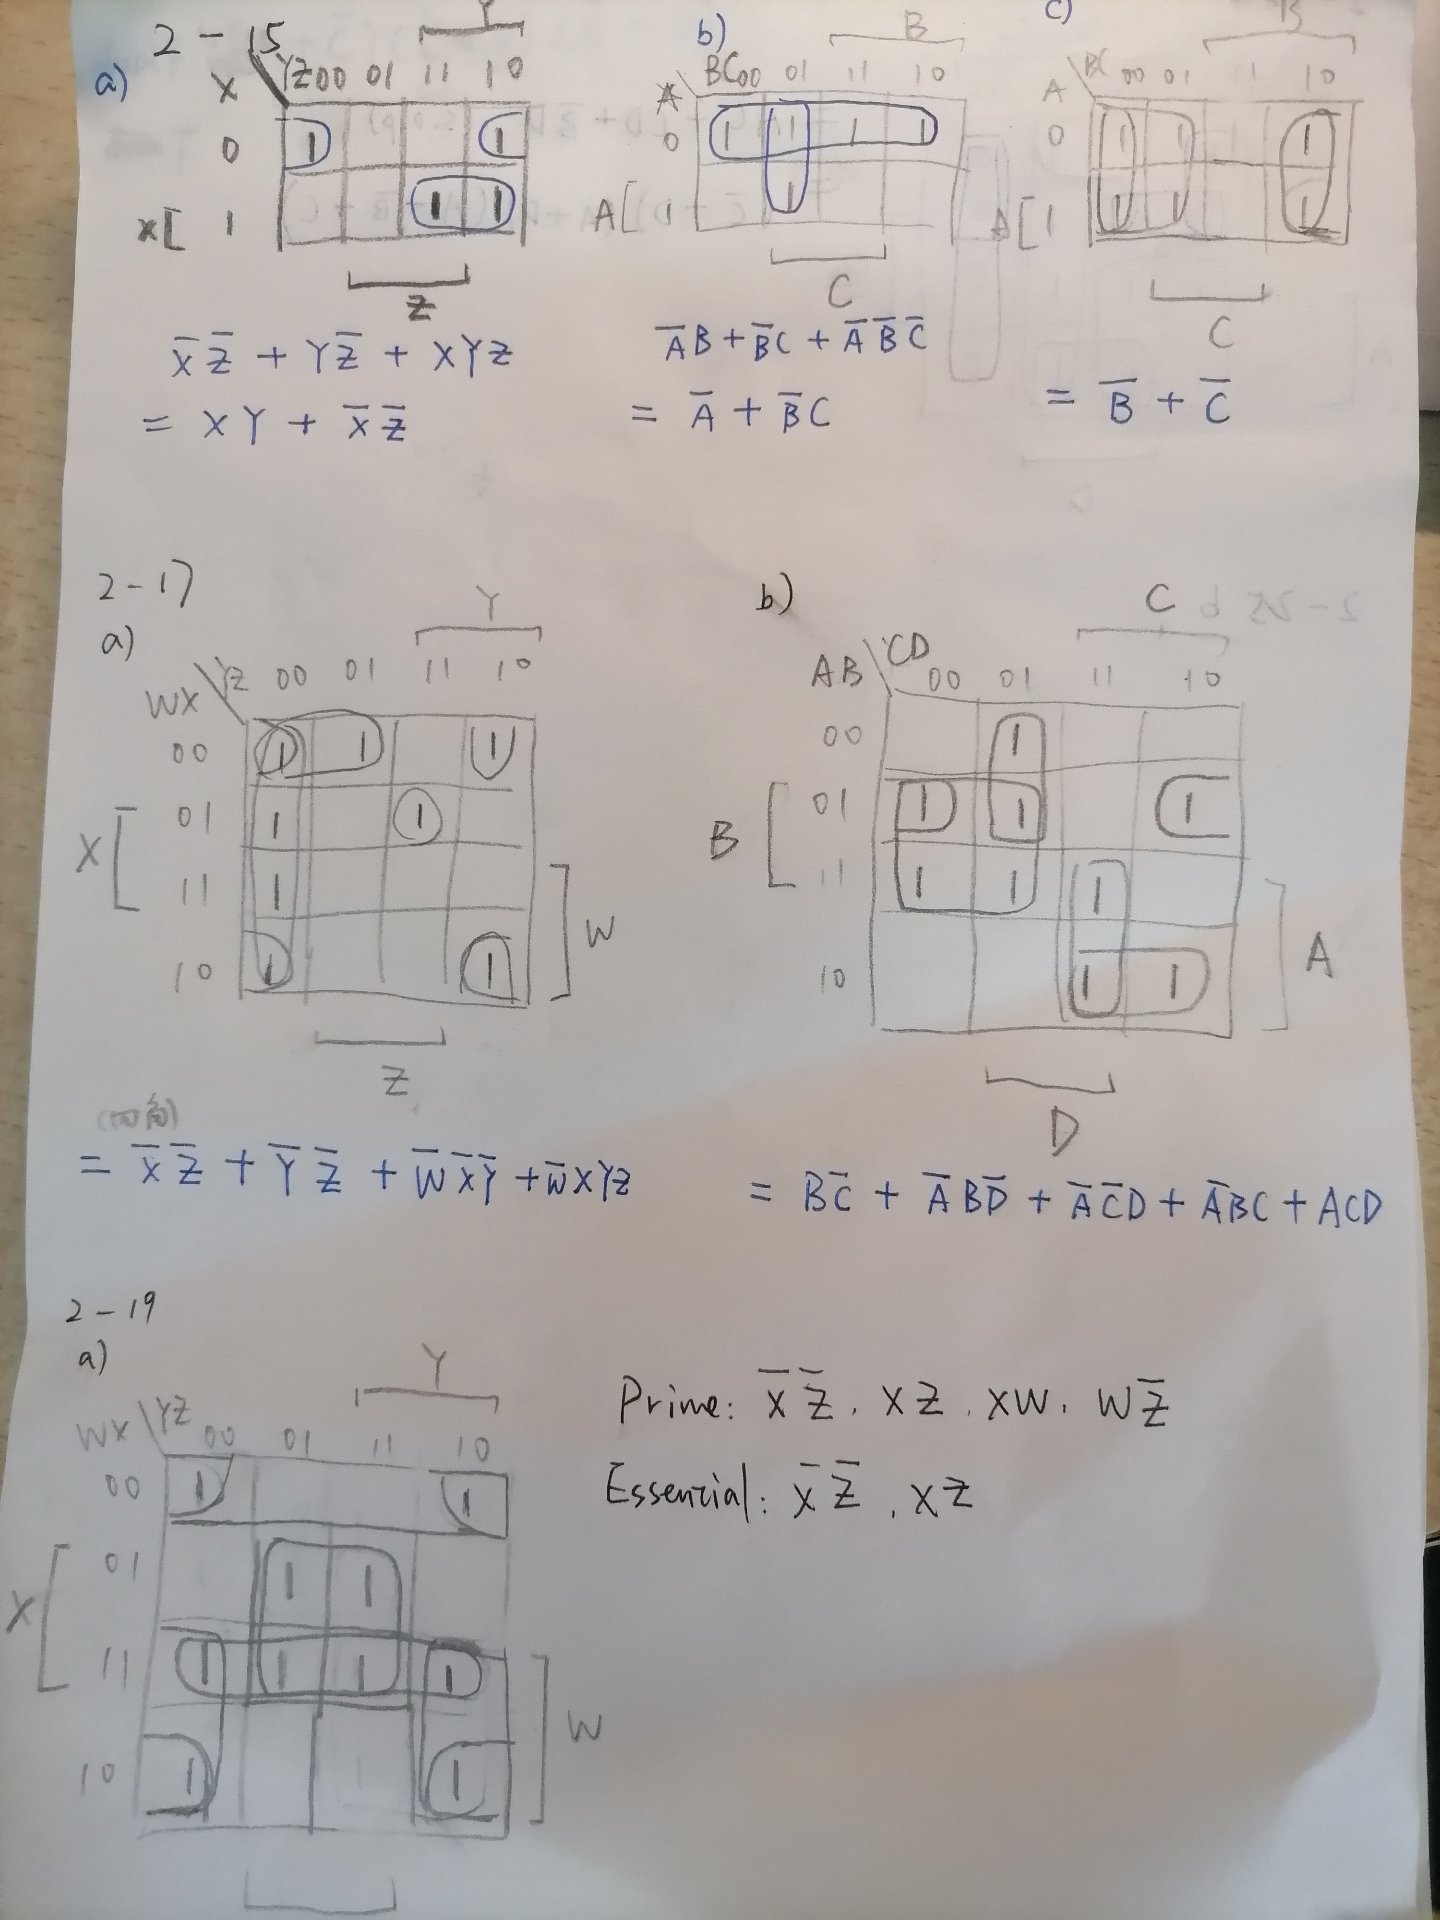 2-15
a)
Y
X \ YZ 00 01 11 10
0 1 1
X[ 1 1 1
Z
X̅Z̅ + YZ̅ + XYZ
= XY + X̅Z̅
b)
B
A \ BC 00 01 11 10
0 1 1 1 1
A[ 1 1
C
A̅B + B̅C + A̅B̅C̅
= A̅ + B̅C
c)
B
A \ BC 00 01 11 10
0 1 1 1
A[ 1 1 1 1
C
= B̅ + C̅
2-17
a)
Y
WX \ YZ 00 01 11 10
00 1 1 1
01 1 1
X [
11 1
] W
10 1 1
Z
(四角)
= X̅Z̅ + Y̅Z̅ + W̅X̅Y̅ + W̅XYZ
b)
C
AB \ CD 00 01 11 10
00 1
01 1 1 1
B [
11 1 1 1
] A
10 1 1
D
= BC̅ + A̅BD̅ + A̅C̅D + A̅BC + ACD
2-19
a)
Y
WX \ YZ 00 01 11 10
00 1 1
01 1 1
X [
11 1 1 1 1
] W
10 1 1
Prime: X̅Z̅, XZ, XW, WZ̅
Essencial: X̅Z̅, XZ